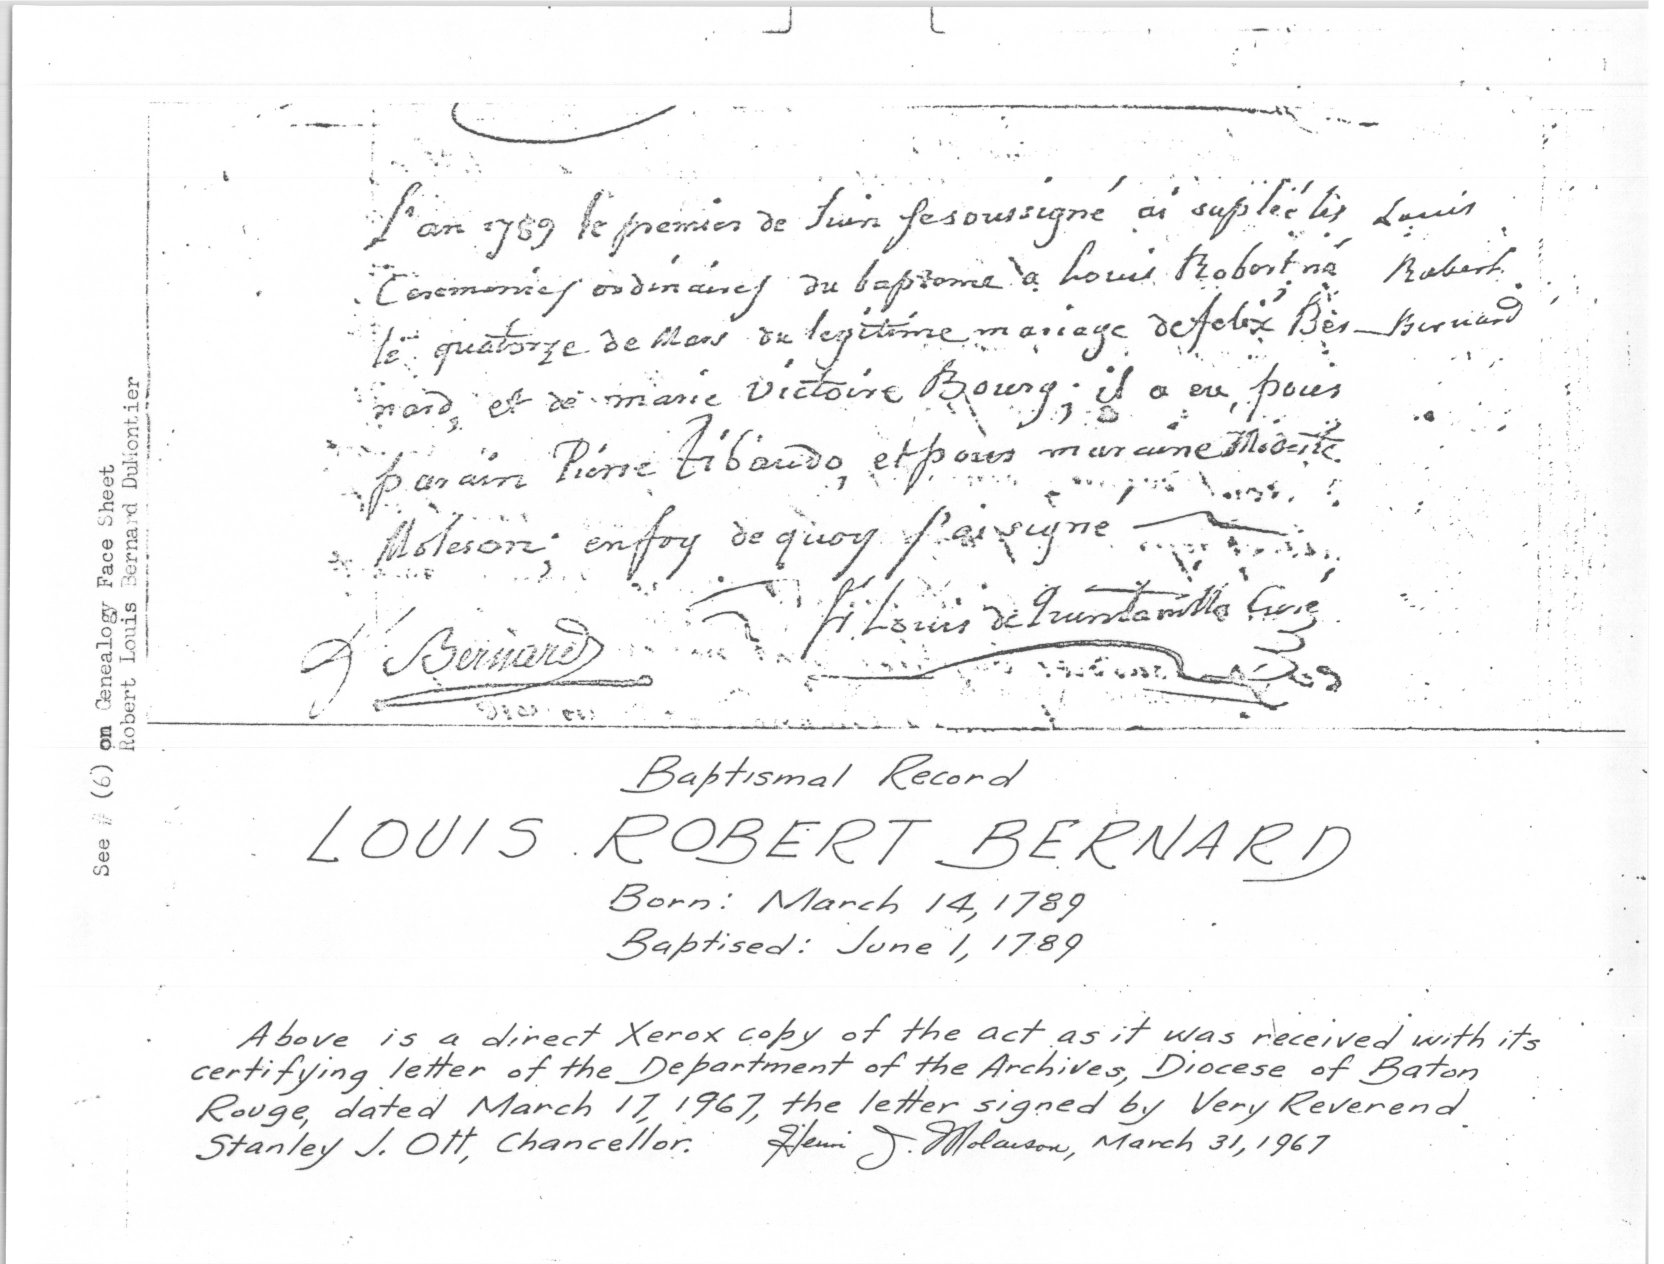 L'an 1789 le premier de Juin Jesoussigné ai supléé les
Ceremonies ordinaires du baptome a Louis Robert, né
le quatorze de Mars du legitime mariage de felix Ber-
nard, et de marie Victoire Bourg; il a eu, pour
parain Pierre Tibaudo, et pour maraine Modeste
Moleson; enfoy de quoy J'ai signé
Louis
Robert
Bernard
fr Louis de Quintanilla Curé
Bernard
See # (6) on Genealogy Face Sheet
Robert Louis Bernard DuMontier
Baptismal Record
LOUIS ROBERT BERNARD
Born: March 14, 1789
Baptised: June 1, 1789
Above is a direct Xerox copy of the act as it was received with its
certifying letter of the Department of the Archives, Diocese of Baton
Rouge, dated March 17, 1967, the letter signed by Very Reverend
Stanley J. Ott, Chancellor. Henri J. Molaison, March 31, 1967